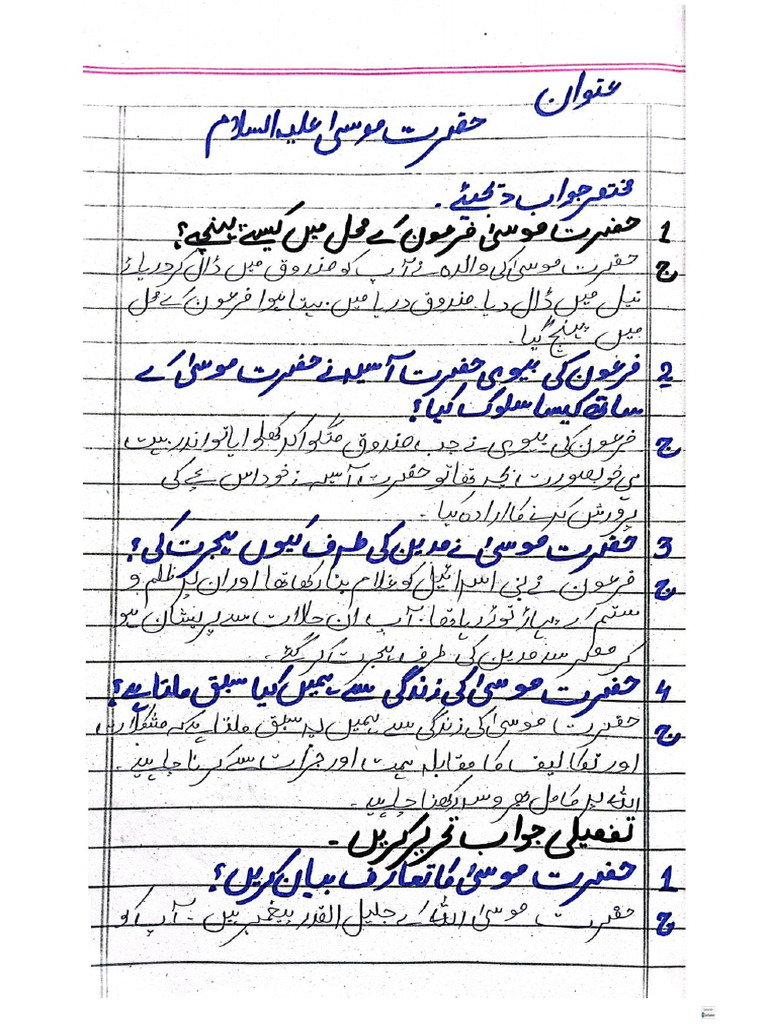 عنوان
حضرت موسیٰ علیہ السلام
مختصر جواب دیجیئے۔
1 حضرت موسیٰ فرعون کے محل میں کیسے پہنچے؟
ج حضرت موسیٰ کی والدہ نے آپ کو صندوق میں ڈال کر دریائے
نیل میں ڈال دیا۔ صندوق دریا میں بہتا ہوا فرعون کے محل
میں پہنچ گیا۔
2 فرعون کی بیوی حضرت آسیہ نے حضرت موسیٰ کے
ساتھ کیسا سلوک کیا؟
ج فرعون کی بیوی نے جب صندوق منگوا کر کھلوایا تو اندر بہت
ہی خوبصورت بچہ تھا تو حضرت آسیہ نے خود اس بچے کی
پرورش کرنے کا ارادہ کیا۔
3 حضرت موسیٰ نے مدین کی طرف کیوں ہجرت کی؟
ج فرعون نے بنی اسرائیل کو غلام بنا رکھا تھا اور ان پر ظلم و
ستم کے پہاڑ توڑ رہا تھا۔ آپ ان حالات سے پریشان ہو
کر مصر سے مدین کی طرف ہجرت کر گئے۔
4 حضرت موسیٰ کی زندگی سے ہمیں کیا سبق ملتا ہے؟
ج حضرت موسیٰ کی زندگی سے ہمیں یہ سبق ملتا ہے کہ مشکلات
اور تکالیف کا مقابلہ ہمت اور جرات سے کرنا چاہیئے۔
اللہ پر کامل بھروسہ رکھنا چاہیے۔
تفصیلی جواب تحریر کریں۔
1 حضرت موسیٰ کا تعارف بیان کریں؟
ج حضرت موسیٰ اللہ کے جلیل القدر پیغمبر ہیں۔ آپ کو